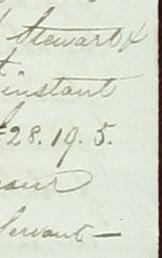 Stewart &
instant
28.19.5.
Servant —